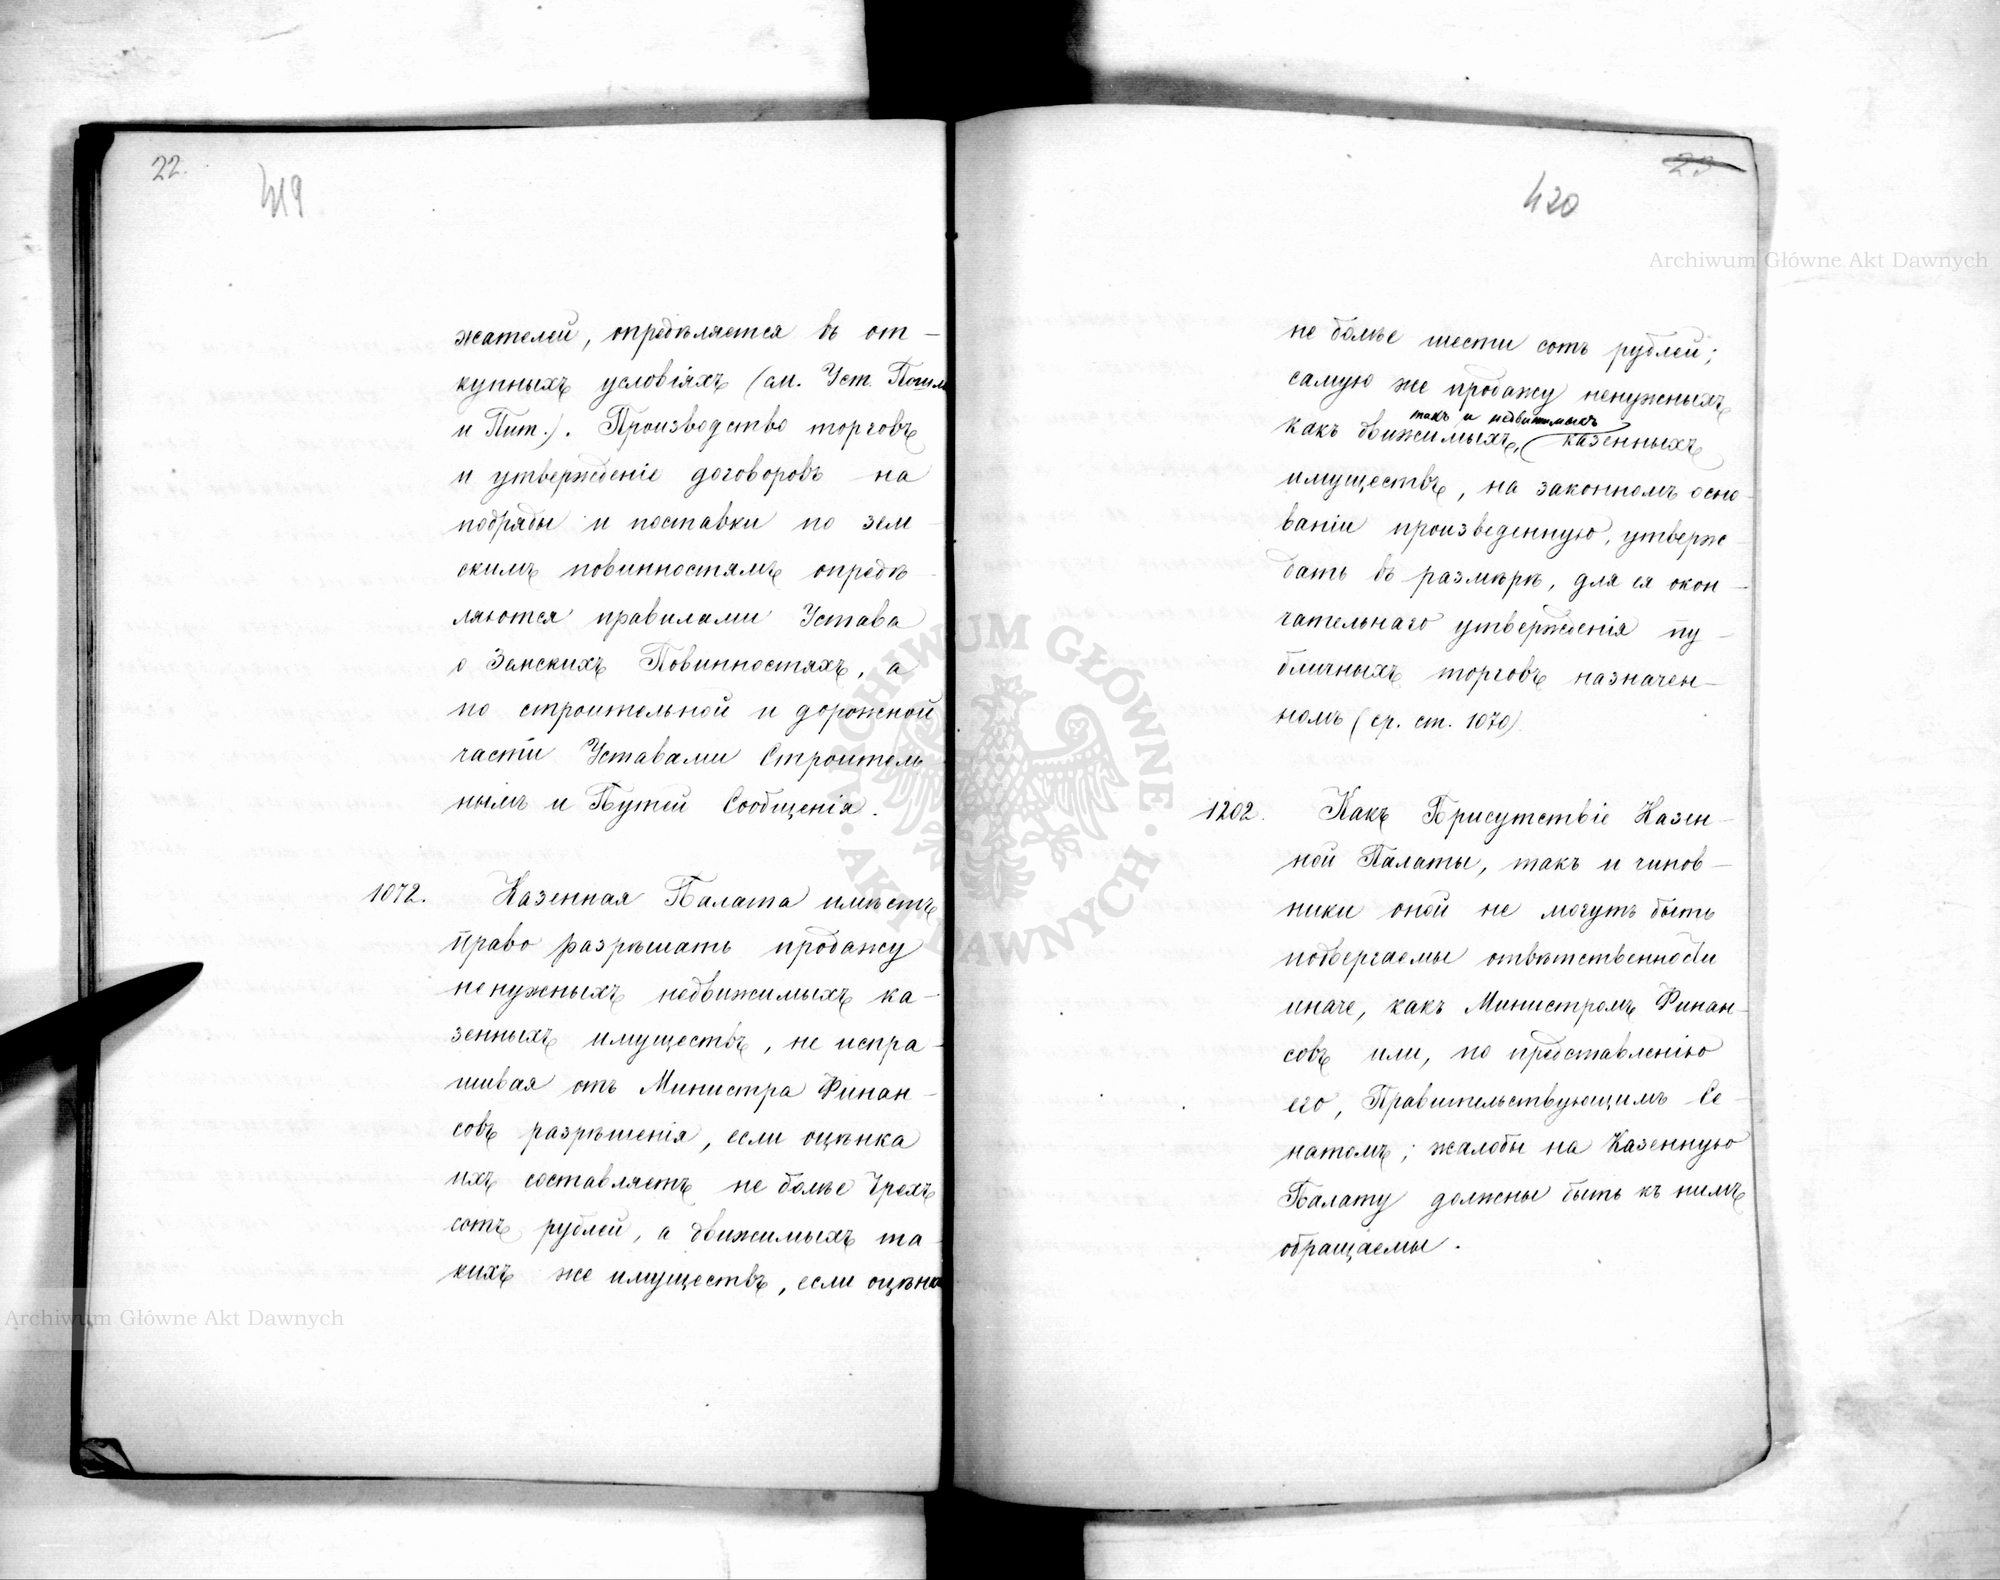 22.
419
жателей, опредѣляется въ от-
купныхъ условіяхъ (см. Уст. Пошл.
и Пит.). Производство торговъ
и утвержденіе договоровъ на
подряды и поставки по зем-
скимъ повинностямъ опредѣ-
ляются правилами Устава
о Земскихъ Повинностяхъ, а
по строительной и дорожной
части Уставами Строитель
нымъ и Путей Сообщенія.
1072. Казенная Палата имѣетъ
право разрѣшать продажу
ненужныхъ недвижимыхъ ка-
зенныхъ имуществъ, не испра-
шивая отъ Министра Финан-
совъ разрѣшенія, если оцѣнка
ихъ составляетъ не болѣе трехъ
сотъ рублей, а движимыхъ та-
кихъ же имуществъ, если оцѣнка
23
420
не болѣе шести сотъ рублей;
самую же продажу ненужныхъ
такъ и недвижимыхъ
какъ движимыхъ, казенныхъ
имуществъ, на законномъ осно-
ваніи произведенную, утверж-
дать въ размѣрѣ, для ея окон-
чательнаго утвержденія пу-
бличныхъ торговъ назначен-
номъ (ср. ст. 1070)
1202. Какъ Присутствіе Казен-
ной Палаты, такъ и чинов-
ники оной не могутъ быть
подвергаемы отвѣтственности
иначе, какъ Министромъ Финан-
совъ или, по представленію
его, Правительствующимъ Се-
натомъ; жалобы на Казенную
Палату должны быть къ нимъ
обращаемы.
Archiwum Główne Akt Dawnych
Archiwum Główne Akt Dawnych
ARCHIWUM GŁÓWNE
AKT DAWNYCH